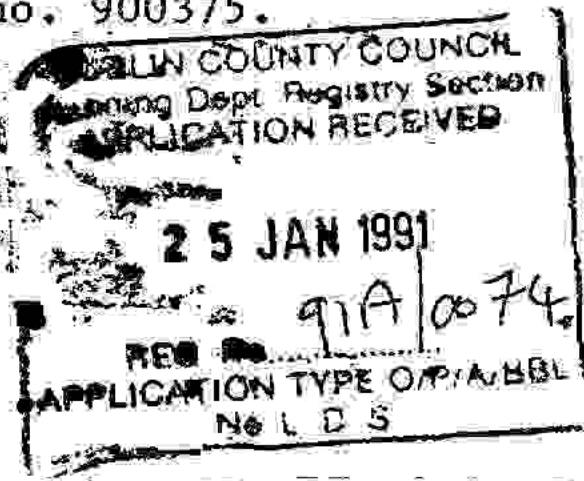 no. 900375.
DUBLIN COUNTY COUNCIL
Planning Dept. Registry Section
APPLICATION RECEIVED
25 JAN 1991
91A/0074
REG No.
APPLICATION TYPE O/P/A/BBL
No L D S